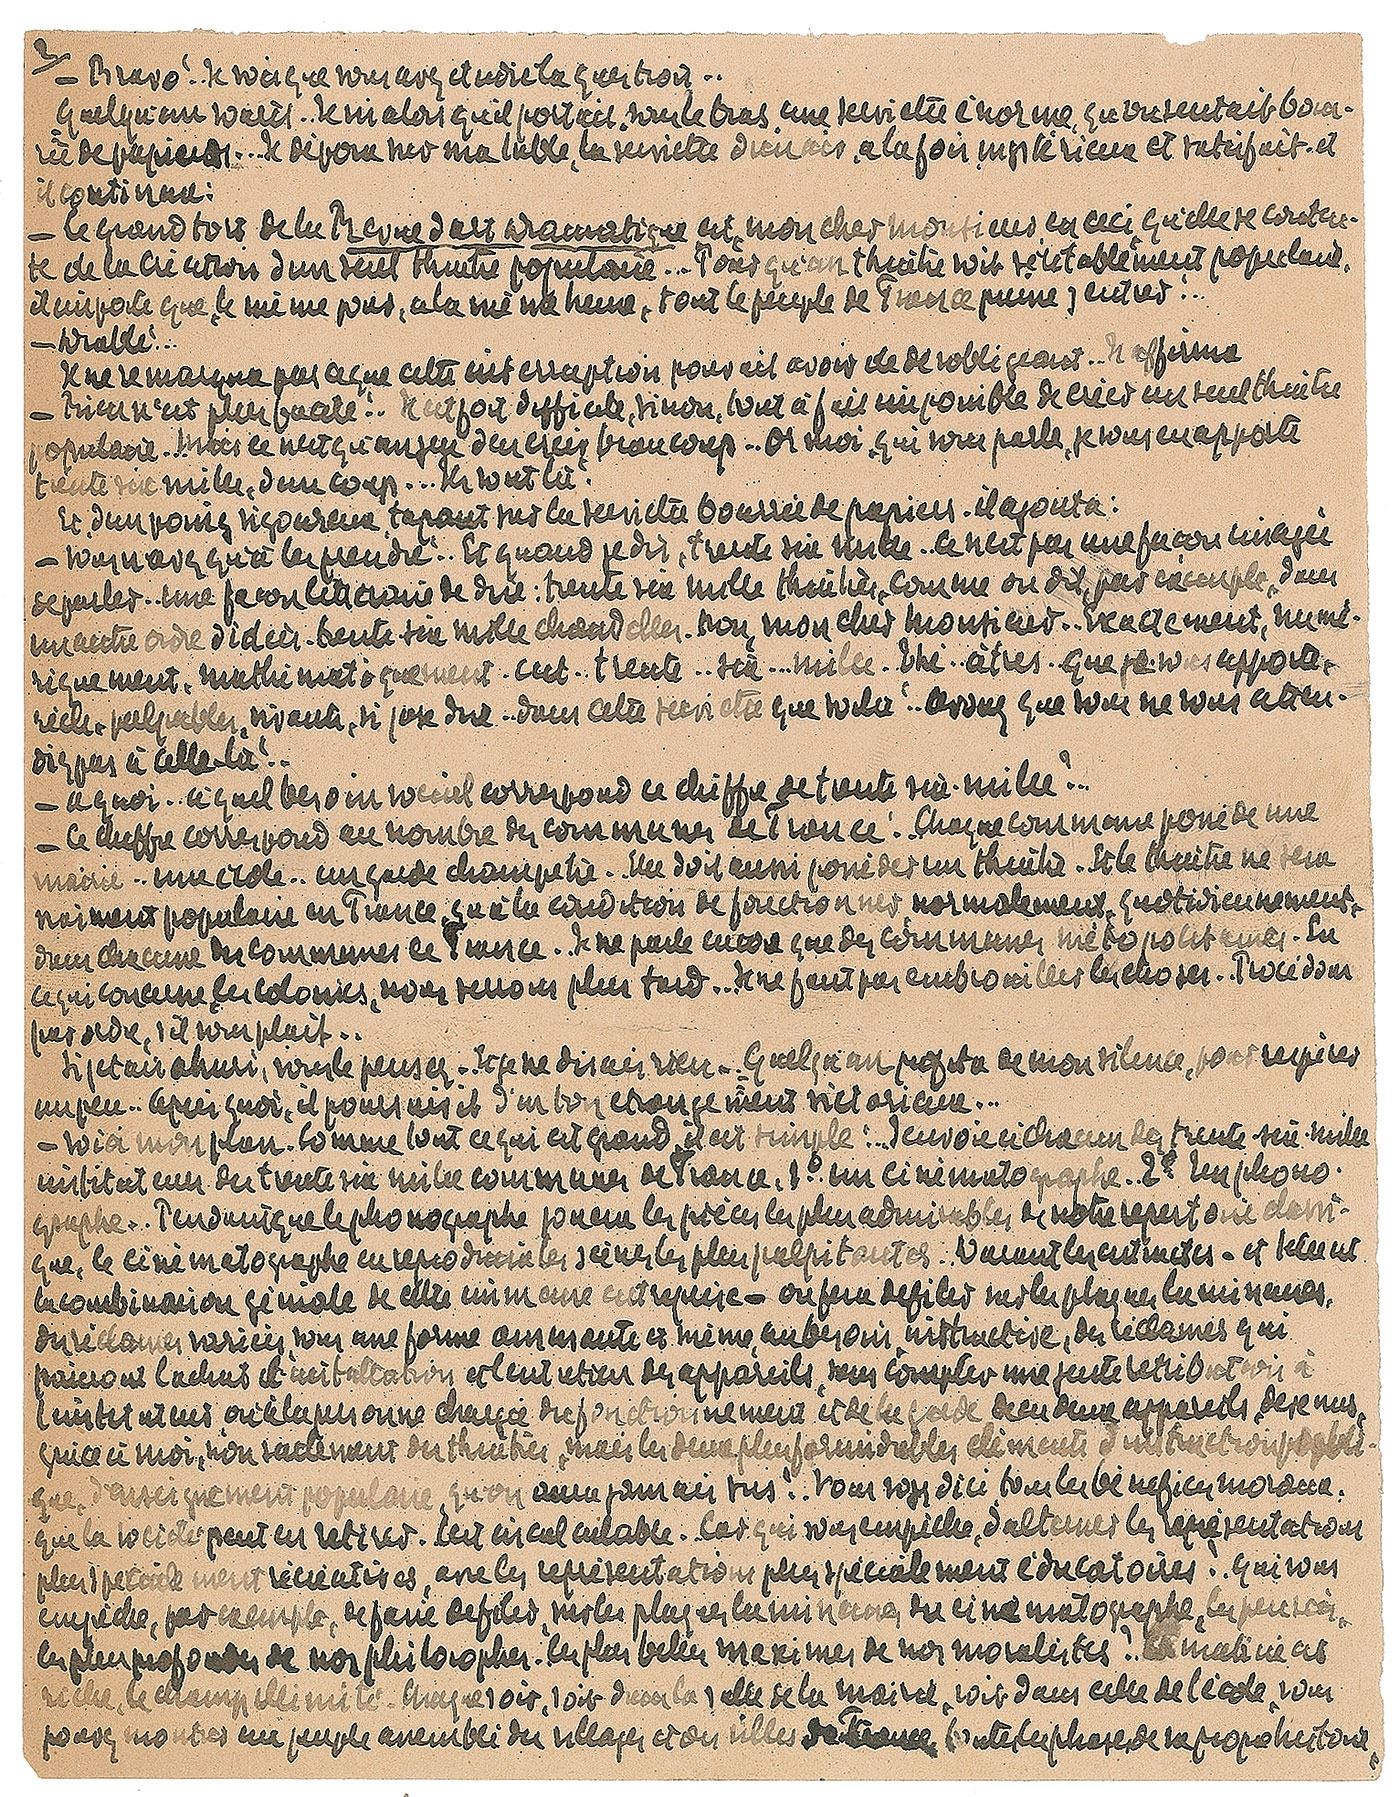 2/
— Bravo !.. Je vois que vous avez étudié la question..
Quelqu'un sourit.. Je vis alors qu'il portait, sous le bras, une serviette énorme, qu'on sentait bour-
rée de papiers... Il déposa sur ma table, la serviette d'un air, à la fois, mystérieux et satisfait. et
il continua :
— Le grand tort de la Revue d'art dramatique est, mon cher monsieur, en ceci, qu'elle se conten-
te de la création d'un seul théâtre populaire... Pour qu'un théâtre soit véritablement populaire,
il importe que, le même jour, à la même heure, tout le peuple de France puisse y entrer !..
— Diable !..
Il ne remarqua pas ce que cette interruption pouvait avoir de désobligeant.. Il affirma
— Rien n'est plus facile !.. Il est fort difficile, sinon, tout à fait impossible de créer un seul théâtre
populaire.. Mais ce n'est qu'un jeu d'en créer beaucoup.. Or moi, qui vous parle, je vous en apporte
trente six mille, d'un coup... Ils sont là !
Et, d'un poing vigoureux, tapant sur la serviette bourrée de papiers. il ajouta :
— Vous n'avez qu'à les prendre !.. Et quand je dis, trente six mille.. ce n'est pas une façon imagée
de parler.. une façon littéraire de dire : trente six mille théâtres, comme on dit, par exemple, dans
un autre ordre d'idées. trente-six mille chandelles. Non, mon cher monsieur.. Exactement, numé-
riquement, mathématiquement. c'est. trente.. six... mille. Thé..âtres.. que je vous apporte,
réels, palpables, vivants, si j'ose dire.. dans cette serviette que voilà !.. Avouez que vous ne vous atten-
diez pas à celle-là !..
— A quoi.. à quel besoin social correspond ce chiffre de trente six-mille ?..
— Ce chiffre correspond au nombre des communes de France !.. Chaque commune possède une
mairie.. une école.. un garde champêtre.. Elle doit aussi posséder un théâtre.. Et le théâtre ne sera
vraiment populaire en France, qu'à la condition de fonctionner, normalement, quotidiennement,
dans chacune des communes de France.. Je ne parle encore que des communes métropolitaines. En
ce qui concerne, les colonies, nous verrons plus tard.. Il ne faut pas embrouiller les choses.. Procédons
par ordre, s'il vous plait..
Si j'étais ahuri, vous le pensez.. Et je ne disais rien.. Quelqu'un profita de mon silence, pour respirer
un peu.. Après quoi, il poursuivit d'un ton étrangement victorieux...
— Voici mon plan. Comme tout ce qui est grand, il est simple !.. J'envoie à chacun des trente-six-mille
instituteurs des trente six mille communes de France. 1° un cinématographe.. 2° Un phono-
graphe.. Pendant que le phonographe jouera les pièces les plus admirables de notre répertoire classi-
que, le cinématographe en reproduira les scènes les plus palpitantes.. Durant les entractes — et telle est
la combinaison géniale de cette immense entreprise — on fera défiler sur les plaques lumineuses,
des réclames variées, sous une forme amusante et même, au besoin, instructive, des réclames qui
paieront l'achat et l'installation et l'entretien des appareils, sans compter une juste rétribution à
l'instituteur ou à la personne chargée du fonctionnement et de la garde de ces deux appareils, devenus,
grâce à moi, non seulement des théâtres, mais les deux plus formidables éléments d'instruction publi-
que, d'enseignement populaire, qu'on aura jamais vus !.. Vous voyez d'ici tous les bénéfices moraux,
que la société peut en retirer. C'est incalculable.. Car qui vous empêche, d'alterner les représentations
plus spécialement récréatives, avec les représentations plus spécialement éducatoires ?.. Qui vous
empêche, par exemple, de faire défiler, sur les plaques lumineuses du cinématographe, les pensées,
les plus profondes de nos philosophes. les plus belles maximes de nos moralistes ?.. La matière est
riche, le champ illimité.. Chaque soir, soit dans la salle de la mairie, soit dans celle de l'école, vous
pouvez montrer au peuple assemblé des villages et des villes toutes les phases de sa propre histoire,